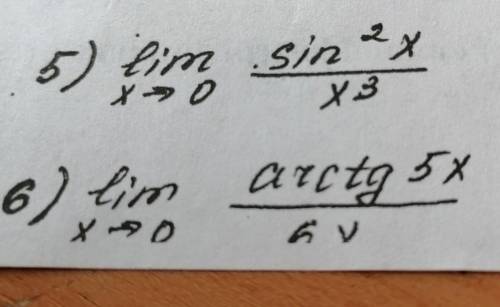 5) lim x→0 sin²x / x³
6) lim x→0 arctg 5x /